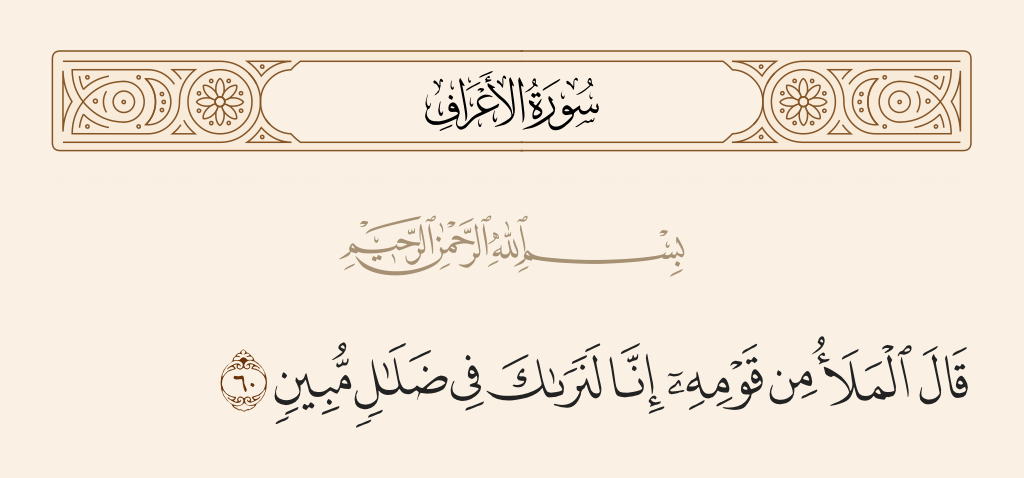 سُورَةُ الأَعْرَافِ
بِسْمِ ٱللَّهِ ٱلرَّحْمَٰنِ ٱلرَّحِيمِ
قَالَ ٱلْمَلَأُ مِن قَوْمِهِۦٓ إِنَّا لَنَرَىٰكَ فِى ضَلَـٰلٍ مُّبِينٍ ٦٠